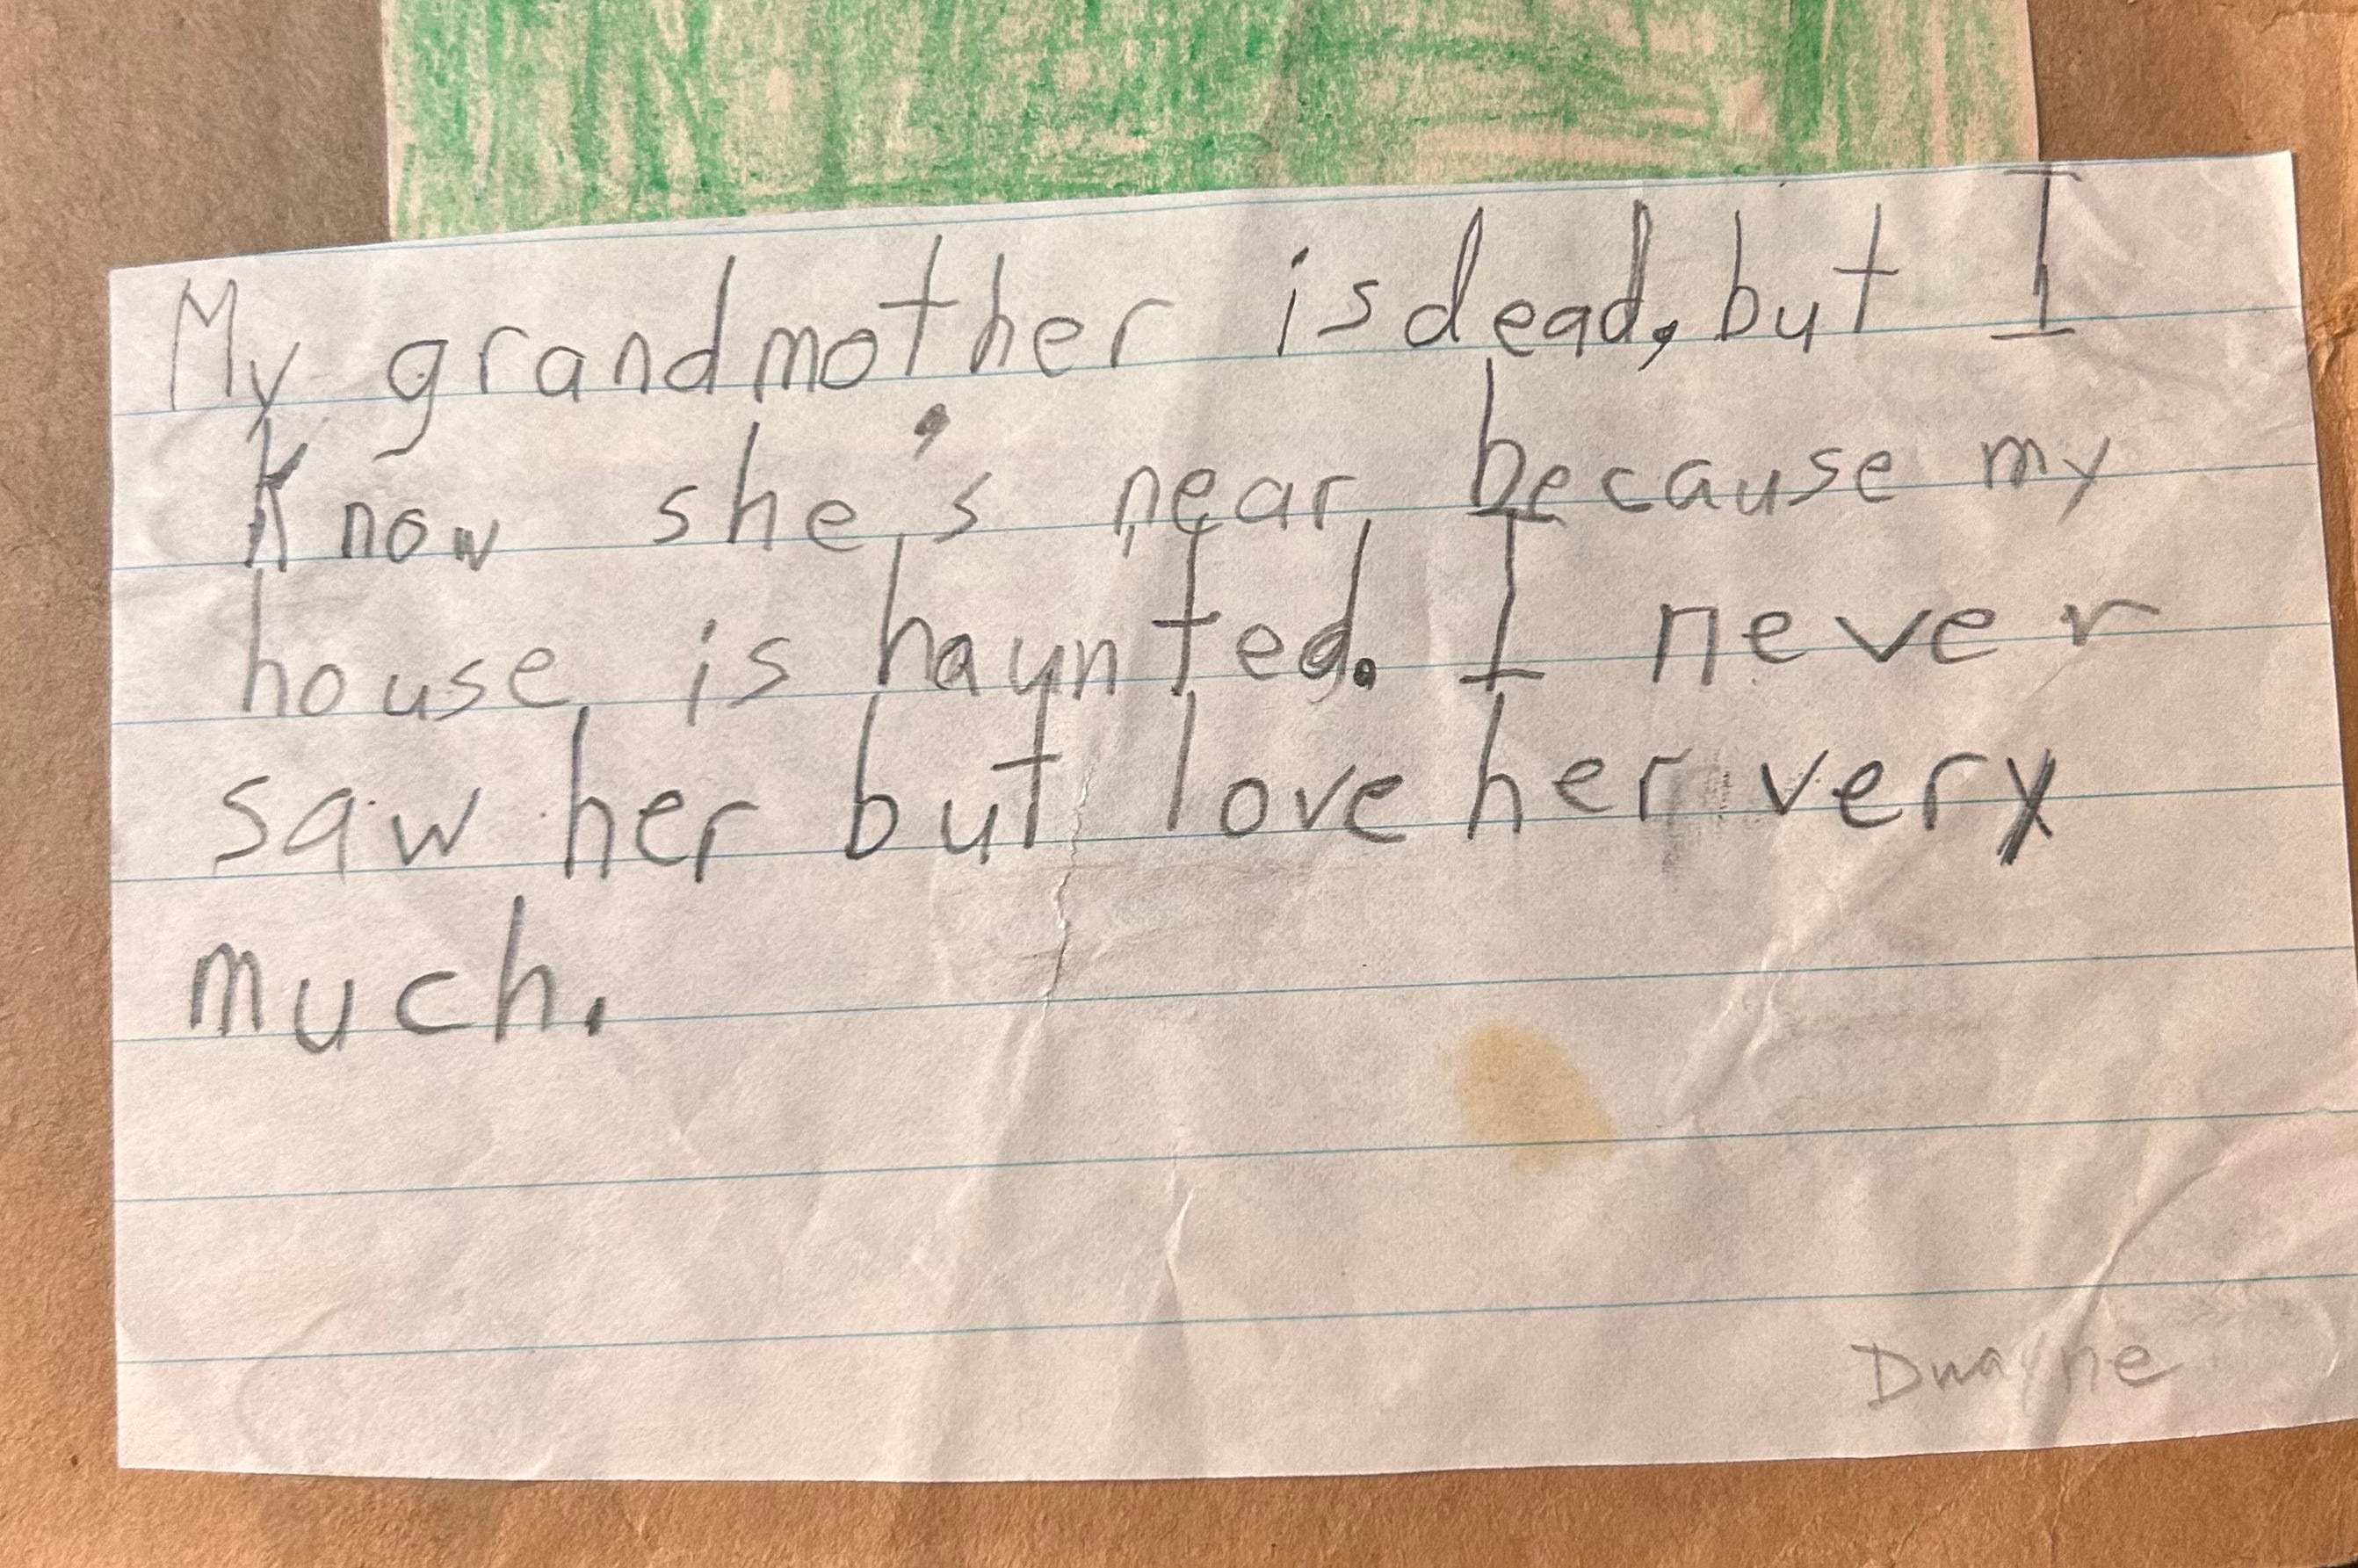 My grandmother is dead, but I
know she's near because my
house is haunted. I never
saw her but love her very
much.
Dwayne